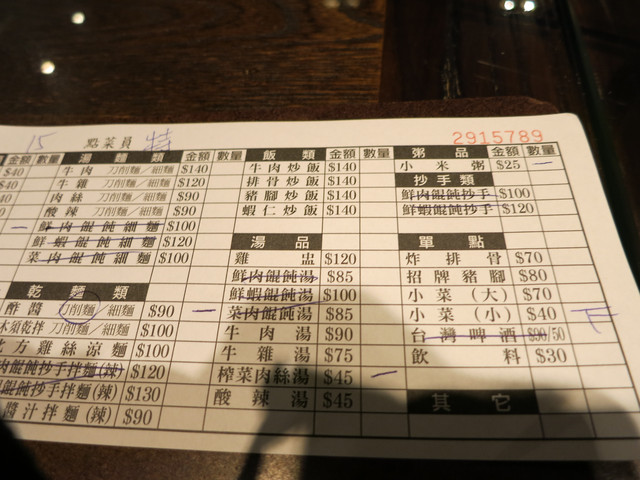 15 點菜員
2915789
金額 數量 湯麵類 金額 數量 飯類 金額 數量 粥品 金額 數量
$40 牛肉 刀削麵/細麵 $140 牛肉炒飯 $140 小米粥 $25 一
$40 牛雜 刀削麵/細麵 $120 排骨炒飯 $140 抄手類
肉絲 刀削麵/細麵 $90 豬腳炒飯 $140 鮮肉餛飩抄手 $100
酸辣 刀削麵/細麵 $90 蝦仁炒飯 $140 鮮蝦餛飩抄手 $120
一 鮮肉餛飩細麵 $100
鮮蝦餛飩細麵 $120 湯品 單點
菜肉餛飩細麵 $100 雞盅 $120 炸排骨 $70
鮮肉餛飩湯 $85 招牌豬腳 $80
乾麵類 鮮蝦餛飩湯 $100 小菜(大) $70
酢醬 刀削麵/細麵 $90 一 菜肉餛飩湯 $85 小菜(小) $40
木須乾拌 刀削麵/細麵 $100 牛肉湯 $90 台灣啤酒 $90/50
北方雞絲涼麵 $100 牛雜湯 $75 飲料 $30
肉餛飩抄手拌麵(辣) $120 榨菜肉絲湯 $45 一
餛飩抄手拌麵(辣) $130 酸辣湯 $45 其它
醬汁拌麵(辣) $90